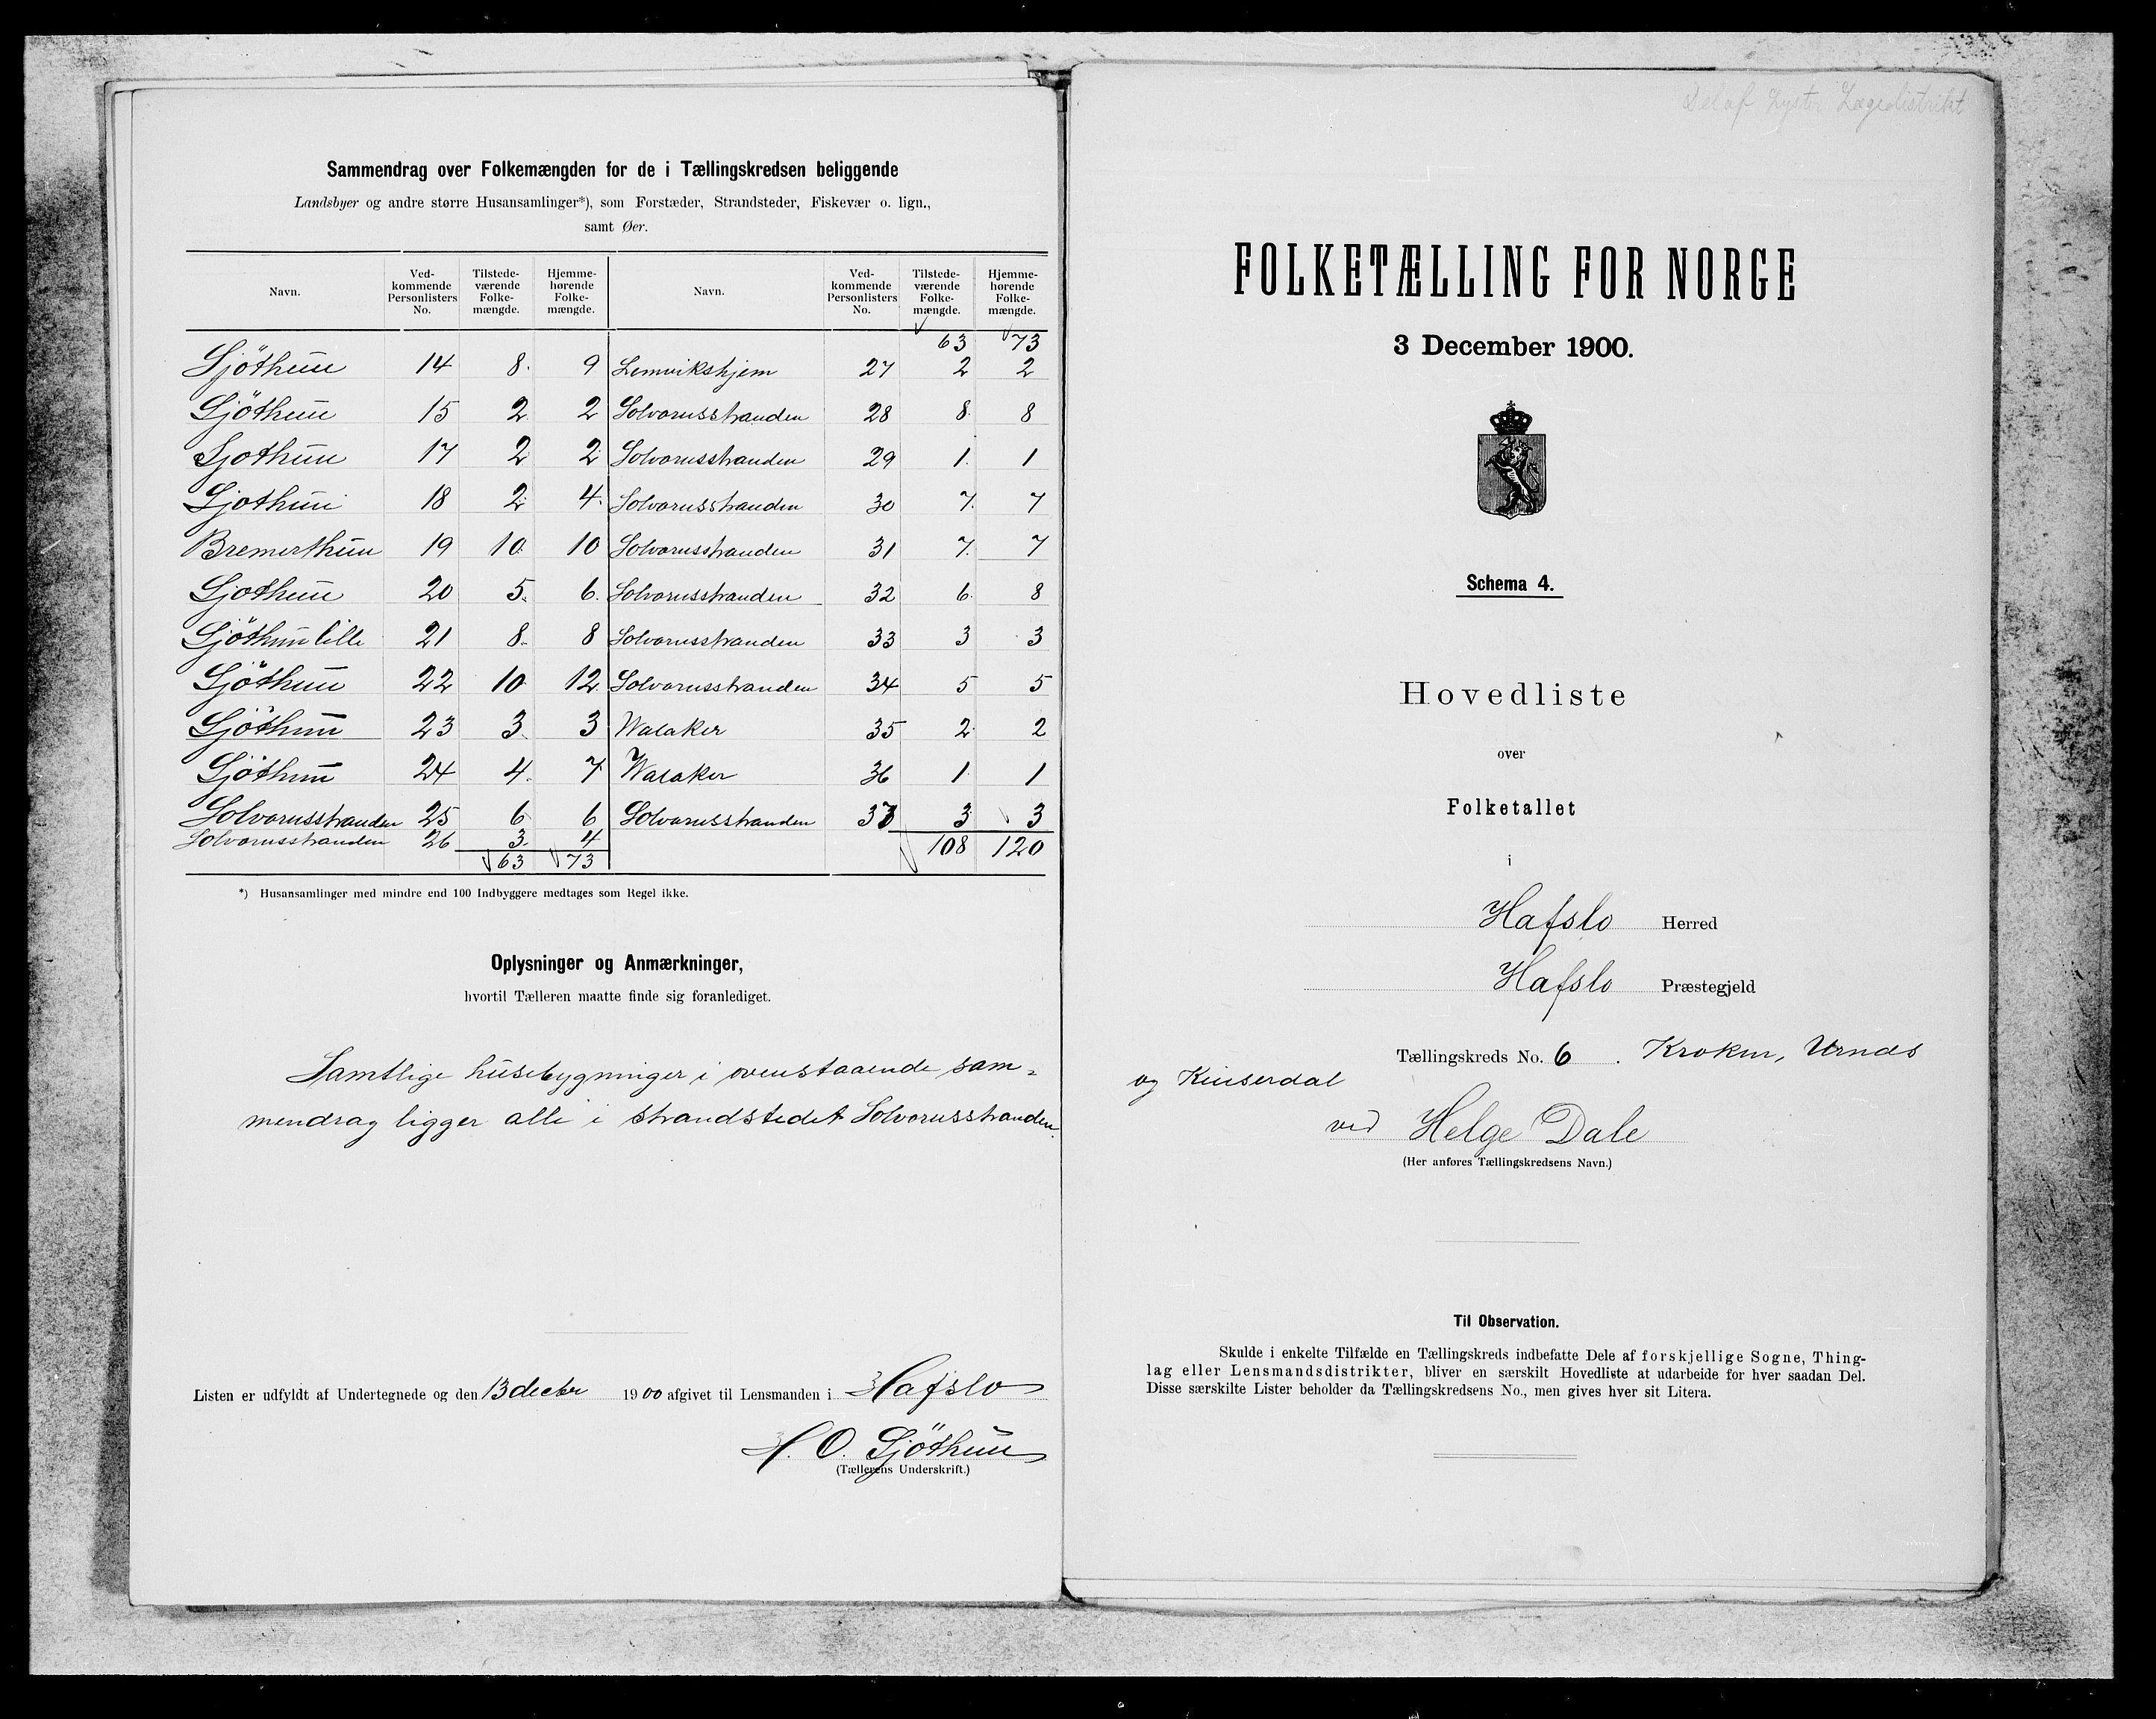 Sammendrag over Folkemængden for de i Tællingskredsen beliggende
Landsbyer og andre større Husansamlinger*), som Forstæder, Strandsteder, Fiskevær o. lign.,
samt Øer.
Navn. Ved-kommende Personlisters No. Tilstede-værende Folke-mængde. Hjemme-hørende Folke-mængde. Navn. Ved-kommende Personlisters No. Tilstede-værende Folke-mængde. Hjemme-hørende Folke-mængde.
63 73
Sjöthun 14 8 9 Lemvikshjem 27 2 2
Sjöthun 15 2 2 Solvornsstranden 28 8 8
Sjothun 17 2 2 Solvornsstranden 29 1 1
Sjothun 18 2 4 Solvornsstranden 30 7 7
Bremerthun 19 10 10 Solvornsstranden 31 7 7
Sjothun 20 5 6 Solvornsstranden 32 6 8
Sjöthun lille 21 8 8 Solvornsstranden 33 3 3
Sjöthun 22 10 12 Solvornsstranden 34 5 5
Sjöthun 23 3 3 Walaker 35 2 2
Sjöthun 24 4 7 Walaker 36 1 1
Solvornsstranden 25 6 6 Solvornsstranden 37 3 3
Solvornsstranden 26 3 4 108 120
63 73
*) Husansamlinger med mindre end 100 Indbyggere medtages som Regel ikke.
Oplysninger og Anmærkninger,
hvortil Tælleren maatte finde sig foranlediget.
Samtlige husebygninger i ovenstaaende sam=
mendrag ligger alle i strandstedet Solvornsstranden.
Listen er udfyldt af Undertegnede og den 13 decbr 1900 afgivet til Lensmanden i Hafslo
O. Sjöthun
(Tællerens Underskrift.)
Del af Lyster Lægedistrikt
FOLKETÆLLING FOR NORGE
3 December 1900.
Schema 4.
Hovedliste
over
Folketallet
i
Hafslo Herred
Hafslo Præstegjeld
Tællingskreds No. 6. Kroken, Urnæs
og Kinserdal
ved Helge Dale
(Her anføres Tællingskredsens Navn.)
Til Observation.
Skulde i enkelte Tilfælde en Tællingskreds indbefatte Dele af forskjellige Sogne, Thing-
lag eller Lensmandsdistrikter, bliver en særskilt Hovedliste at udarbeide for hver saadan Del.
Disse særskilte Lister beholder da Tællingskredsens No., men gives hver sit Litera.